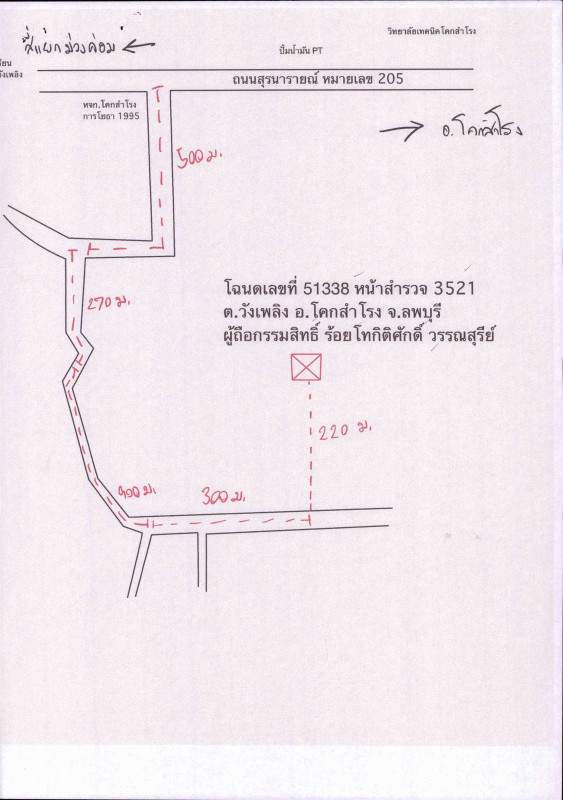 วิทยาลัยเทคนิคโคกสำโรง
สี่แยกม่วงค่อม
ปั๊มน้ำมัน PT
วังเพลิง
ถนนสุรนารายณ์ หมายเลข 205
หจก.โคกสำโรง
การโยธา 1995
อ.โคกสำโรง
500 ม.
270 ม.
โฉนดเลขที่ 51338 หน้าสำรวจ 3521
ต.วังเพลิง อ.โคกสำโรง จ.ลพบุรี
ผู้ถือกรรมสิทธิ์ ร้อยโทกิติศักดิ์ วรรณสุรีย์
220 ม.
300 ม.